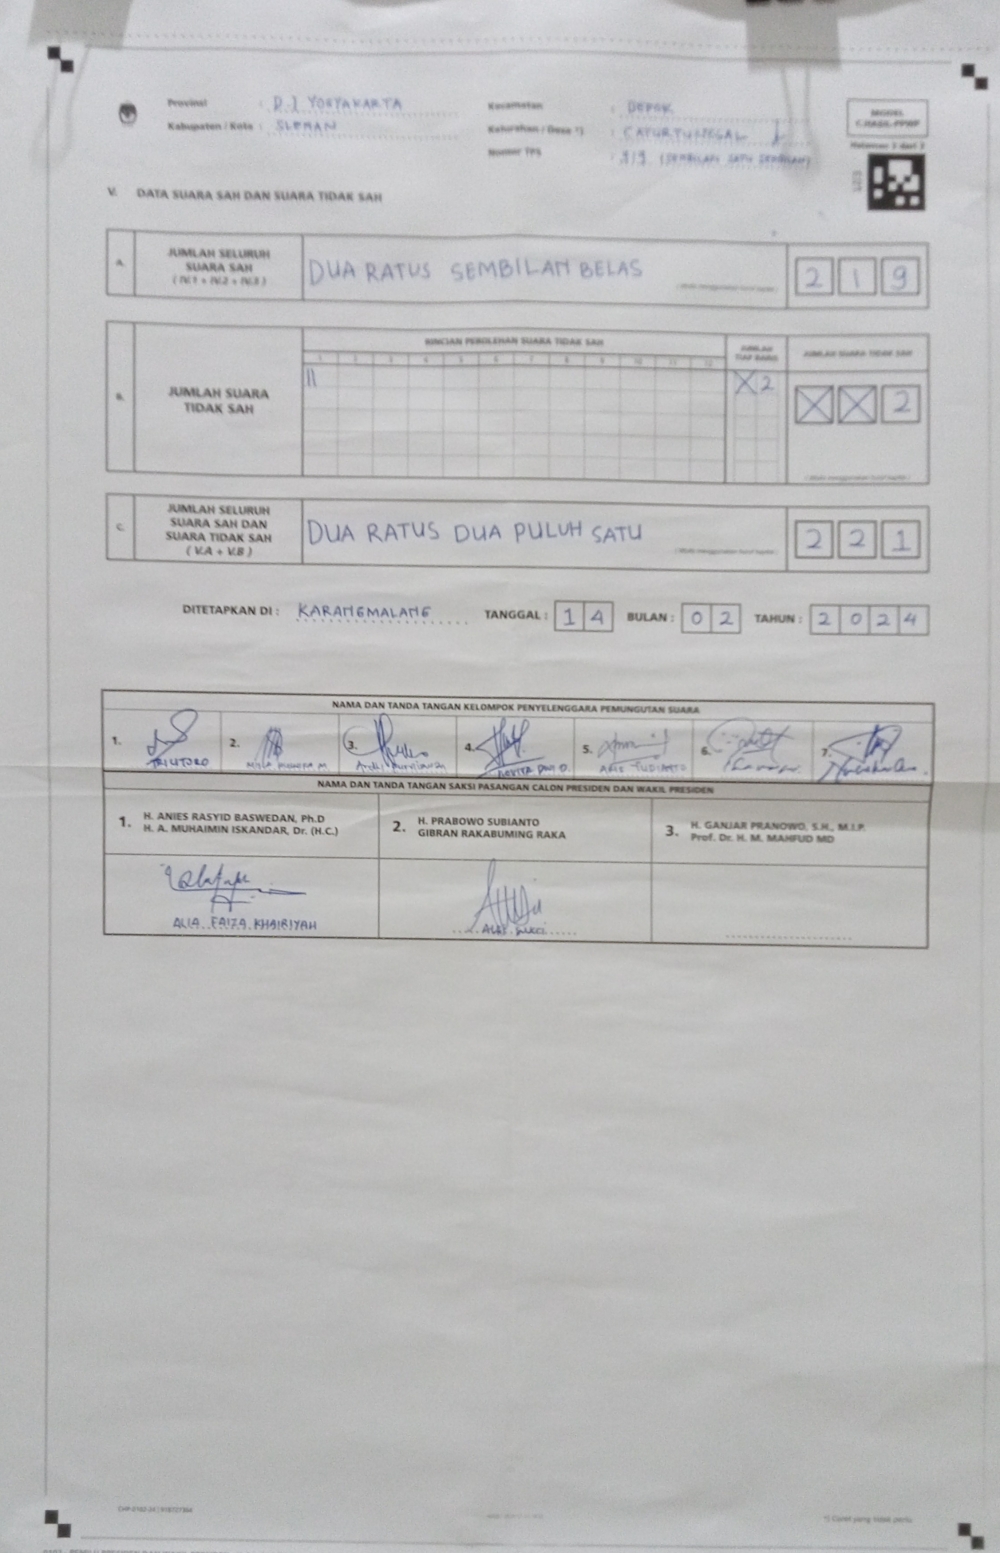 Provinsi : D.I YOGYAKARTA
Kabupaten / Kota : SLEMAN
Kecamatan : DEPOK
Kelurahan / Desa *) : CATURTUNGGAL
Nomor TPS : 919 (SEMBILAN SATU SEMBILAN)
MODEL
C.HASIL-PPWP
Halaman 3 dari 3
V. DATA SUARA SAH DAN SUARA TIDAK SAH
A. JUMLAH SELURUH
SUARA SAH
( IV.1 + IV.2 + IV.3 )
DUA RATUS SEMBILAN BELAS
2 1 9
B. JUMLAH SUARA
TIDAK SAH
RINCIAN PEROLEHAN SUARA TIDAK SAH
1 2 3 4 5 6 7 8 9 10 11 12
JUMLAH
TIAP BARIS
JUMLAH SUARA TIDAK SAH
||
X 2
X X 2
C. JUMLAH SELURUH
SUARA SAH DAN
SUARA TIDAK SAH
( V.A + V.B )
DUA RATUS DUA PULUH SATU
2 2 1
DITETAPKAN DI : KARANGMALANG TANGGAL : 14 BULAN : 02 TAHUN : 2024
NAMA DAN TANDA TANGAN KELOMPOK PENYELENGGARA PEMUNGUTAN SUARA
1. TRIUTORO 2. 3. 4. 5. ARIS YUDIANTO 6. 7.
NAMA DAN TANDA TANGAN SAKSI PASANGAN CALON PRESIDEN DAN WAKIL PRESIDEN
1. H. ANIES RASYID BASWEDAN, Ph.D
H. A. MUHAIMIN ISKANDAR, Dr. (H.C.)
2. H. PRABOWO SUBIANTO
GIBRAN RAKABUMING RAKA
3. H. GANJAR PRANOWO, S.H., M.I.P.
Prof. Dr. H. M. MAHFUD MD
ALIA FAIZA KHAIRIYAH
*) Coret yang tidak perlu